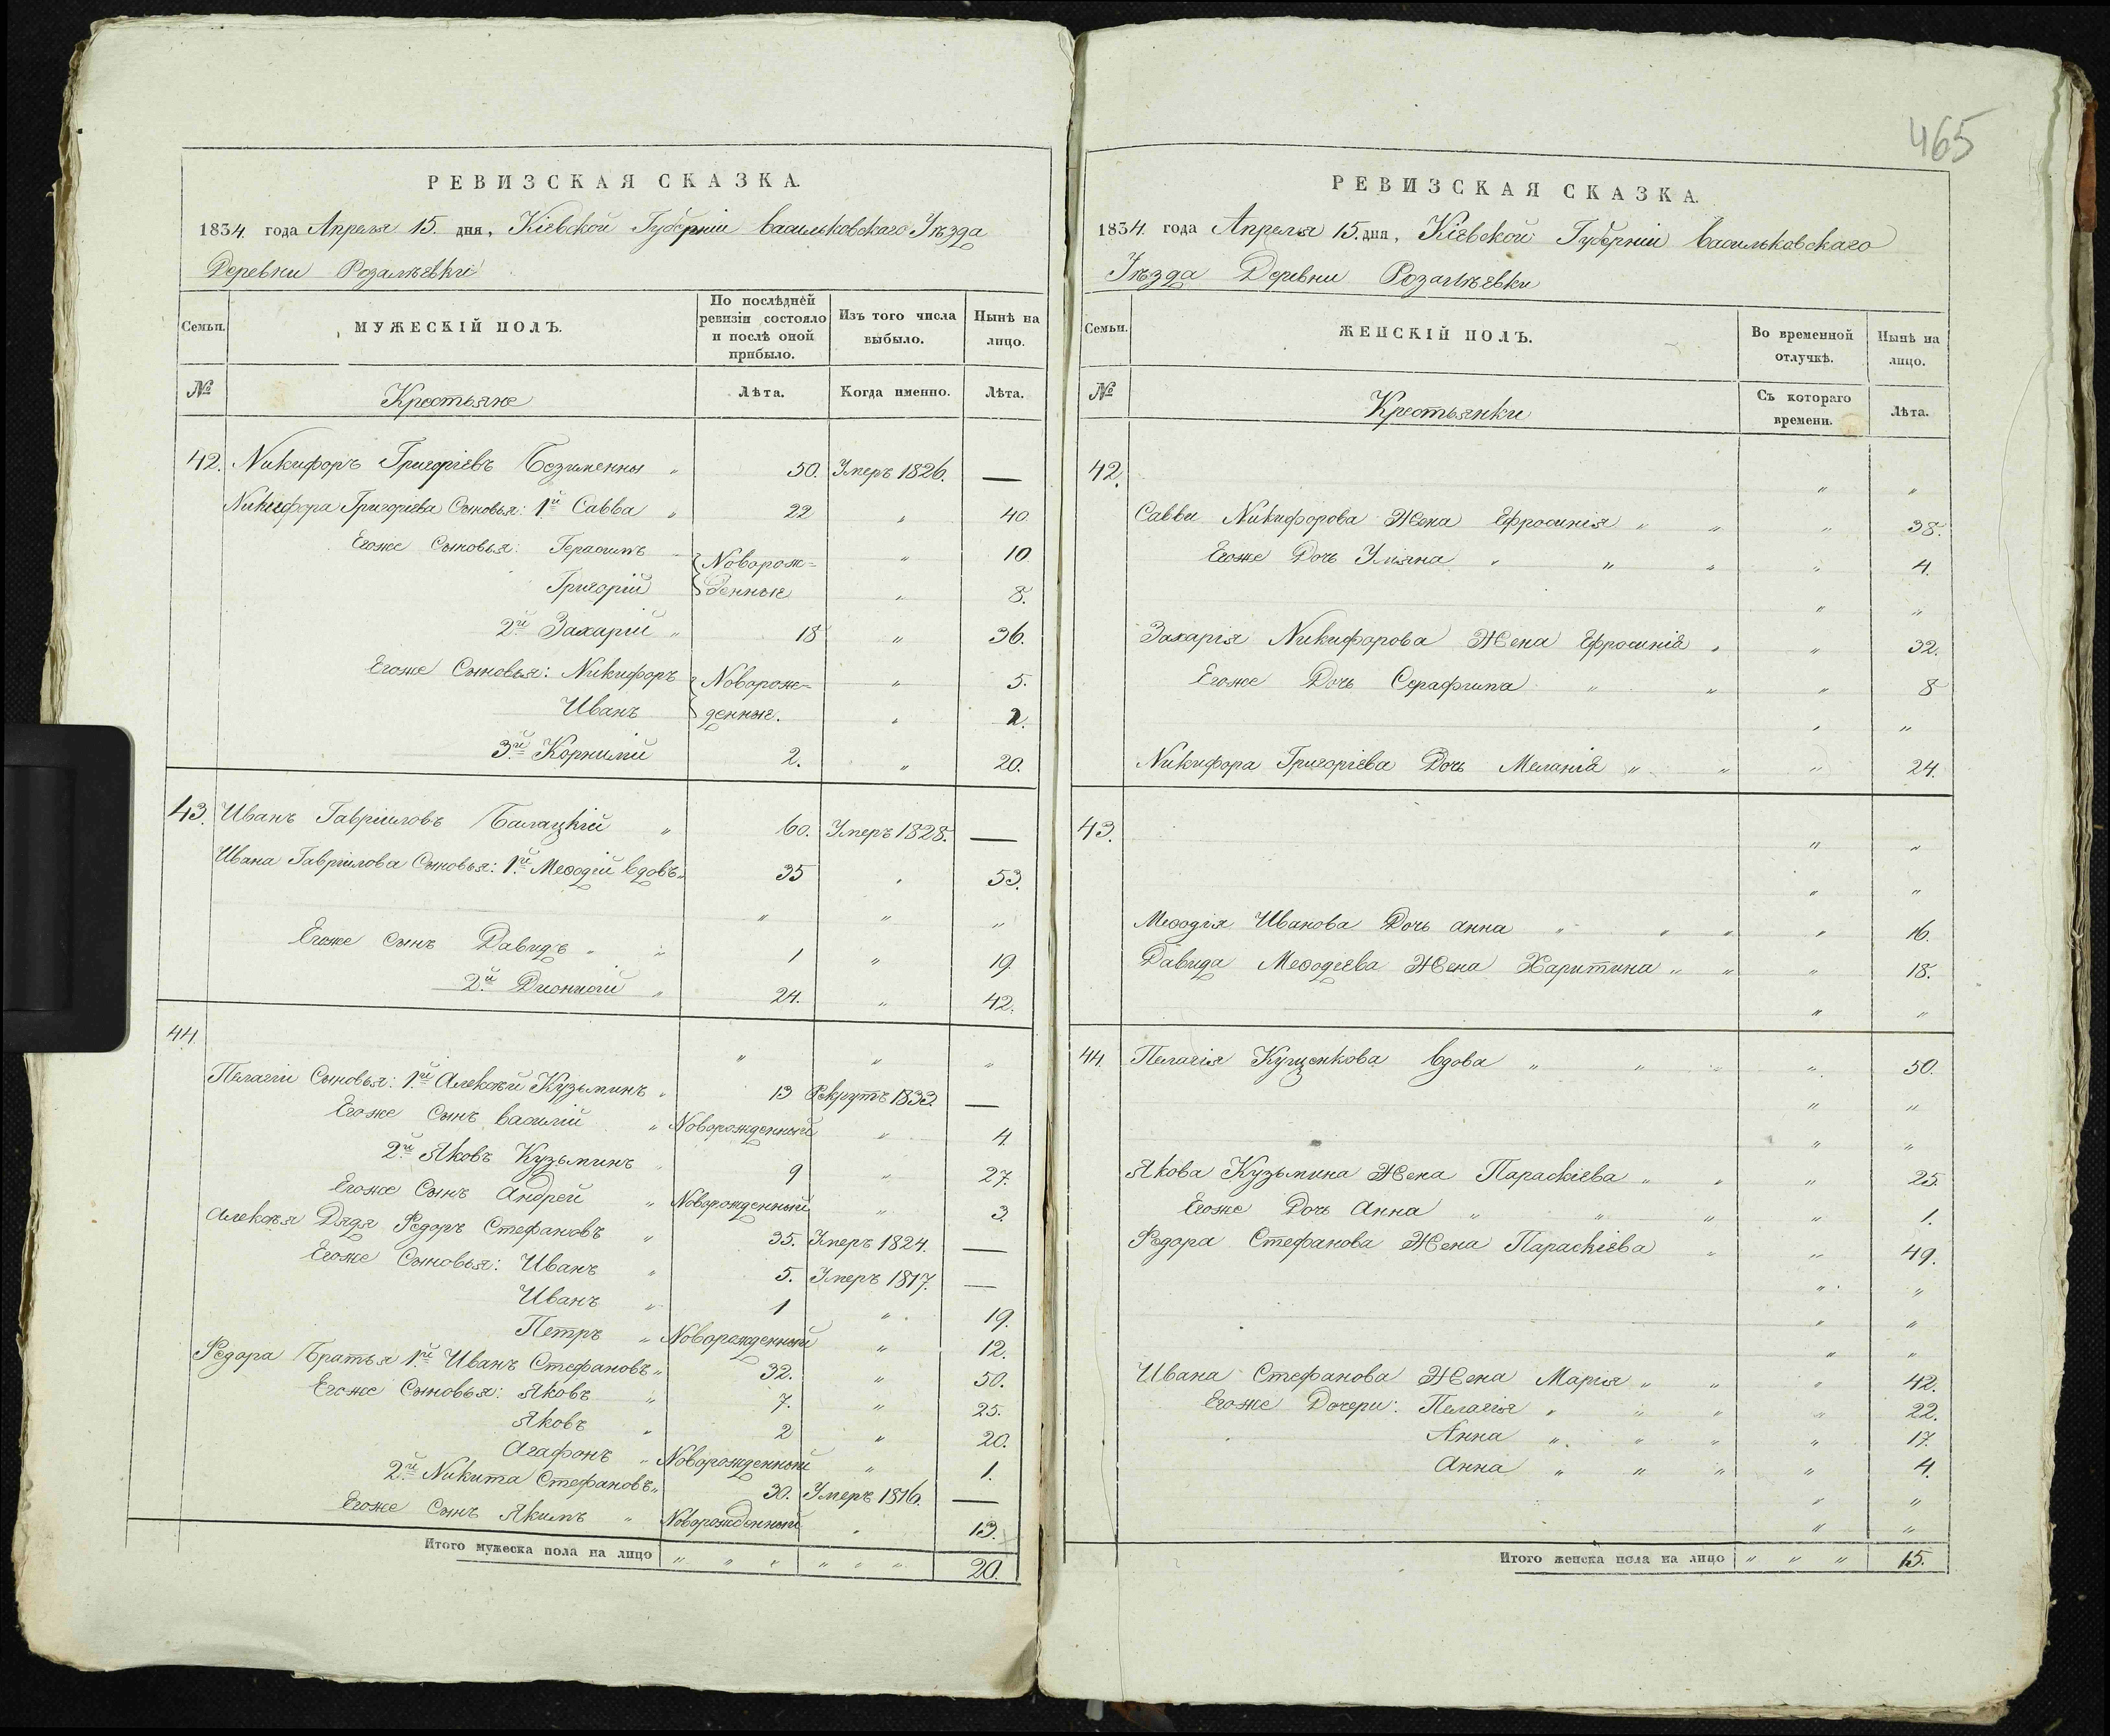 РЕВИЗСКАЯ СКАЗКА.
1834. года Апреля 15. дня, Кіевской Губерніи Васильковскаго Уѣзда
Деревни Розалѣевки
Семьи. МУЖЕСКІЙ ПОЛЪ. По послѣдней ревизіи состояло и послѣ оной прибыло. Изъ того числа выбыло. Нынѣ на лицо.
№ Крестьяне Лѣта. Когда именно. Лѣта.
42. Никифоръ Григоріевъ Безименны " 50. Умеръ 1826. —
Никифора Григоріева Сыновья: 1й Савва " 22 " 40
Егоже Сыновья: Герасимъ Новорож= " 10
Григорій денные " 8.
2й Захарій " 18 " 36.
Егоже Сыновья: Никифоръ Новорож= " 5.
Иванъ денные. " 2.
3й Корнилій 2. " 20.
43. Иванъ Гавріиловъ Балацкій " 60. Умеръ 1828. —
Ивана Гавріилова Сыновья: 1й Меѳодій вдовъ " 35 " 53.
" " "
Егоже сынъ Давидъ " " 1 " 19
2й Дионисій " 24. " 42.
44. " " "
Пелагіи Сыновья: 1й Алексѣй Кузьминъ " 13 Рекрутъ 1833. —
Егоже Сынъ Василій " Новорожденный " 4.
2й Яковъ Кузьминъ " 9 " 27.
Егоже Сынъ Андрей " Новорожденный " 3.
Алексѣя Дядя Федоръ Стефановъ " 35. Умеръ 1824. —
Егоже Сыновья: Иванъ " 5. Умеръ 1817. —
Иванъ " 1 " 19.
Петръ " Новорожденный " 12.
Федора Братья 1й Иванъ Стефановъ " 32. " 50.
Егоже Сыновья: Яковъ " 7. " 25.
Яковъ " 2 " 20.
Агафонъ " Новорожденный " 1.
2й Никита Стефановъ " 30. Умеръ 1816. —
Егоже Сынъ Якимъ " Новорожденный " 13.
Итого мужеска пола на лицо " " " " " " 20.
465
РЕВИЗСКАЯ СКАЗКА.
1834. года Апреля 15. дня, Кіевской Губерніи Васильковскаго
Уѣзда Деревни Розалѣевки
Семьи. ЖЕНСКІЙ ПОЛЪ. Во временной отлучкѣ. Нынѣ на лицо.
№ Крестьянки Съ котораго времени. Лѣта.
42. " "
Саввы Никифорова Жена Ефросинія " " " 38.
Егоже Дочь Уляна " " " " 4.
" "
Захарія Никифорова Жена Ефросинія " " 32.
Егоже Дочь Серафима " " " 8
" "
Никифора Григоріева Дочь Меланія " " " 24.
43. " "
" "
Меѳодія Иванова Дочь Анна " " " " 16.
Давида Меѳодіева Жена Харитина " " " 18.
" "
44. Пелагія Кущенкова Вдова " " " " 50.
" "
" "
Якова Кузьмина Жена Параскіева " " " 25.
Егоже Дочь Анна " " " " 1.
Федора Стефанова Жена Параскіева " " 49.
" "
" "
" "
Ивана Стефанова Жена Марія " " " 42.
Егоже Дочери: Пелагія " " " " 22.
Анна " " " " 17.
Анна " " " " 4.
" "
" "
Итого женска пола на лицо " " " 15.